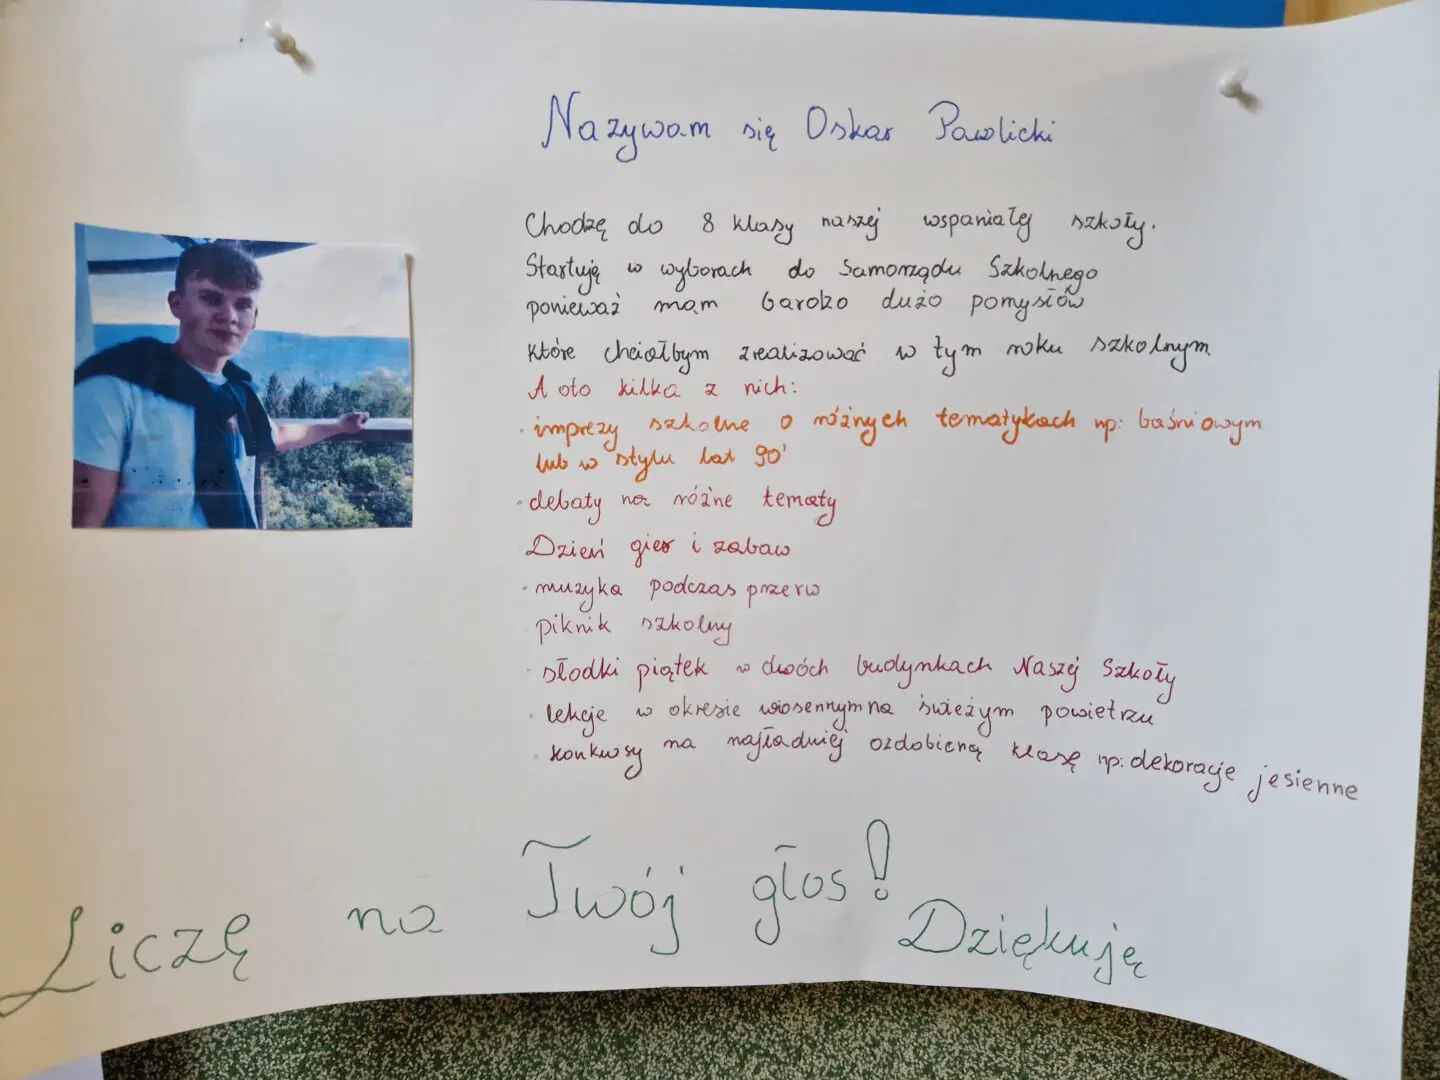 Nazywam się Oskar Pawlicki
Chodzę do 8 klasy naszej wspaniałej szkoły.
Startuję w wyborach do Samorządu Szkolnego
ponieważ mam bardzo dużo pomysłów
które chciałbym zrealizować w tym roku szkolnym
A oto kilka z nich:
· imprezy szkolne o różnych tematykach np: baśniowym
lub w stylu lat 90'
· debaty na różne tematy
Dzień gier i zabaw
· muzyka podczas przerw
piknik szkolny
· słodki piątek w dwóch budynkach Naszej Szkoły
· lekcje w okresie wiosennym na świeżym powietrzu
· konkursy na najładniej ozdobioną klasę np: dekoracje jesienne
Liczę na Twój głos! Dziękuję